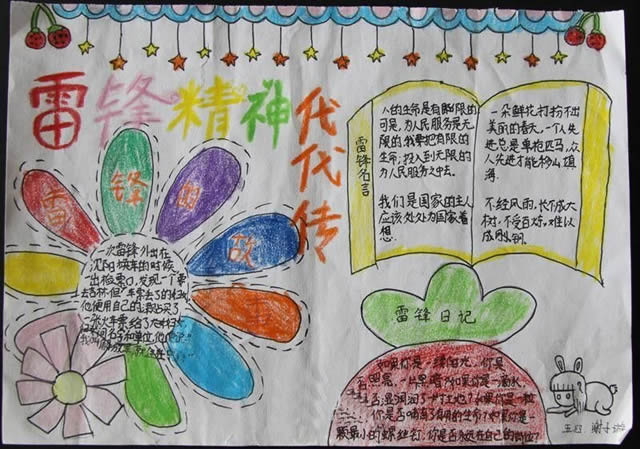 雷锋精神代代传
雷锋的故事
一次雷锋外出在
沈阳换车的时候
一出检票口,发现一
他使用自己的
雷锋名言
人的生命是有限的
可是,为人民服务是无
限的,我要把有限的
生命,投入到无限的
为人民服务之中去。
我们是国家的主人
应该处处为国家着
想.
一朵鲜花打扮不出
美丽的春天,一个人先
进总是单枪匹马,众
人先进才能移山填
海.
不经风雨,长不成大
树,不受百炼,难以
成钢.
雷锋日记
如果你是一线阳光,你是
否照亮一片黑暗?如果你是一滴水,
是否滋润了一寸土地?如果你是一粒
你是否哺育了有用的生命?如果你是一
颗最小的螺丝钉,你是否永远在自己的岗位?